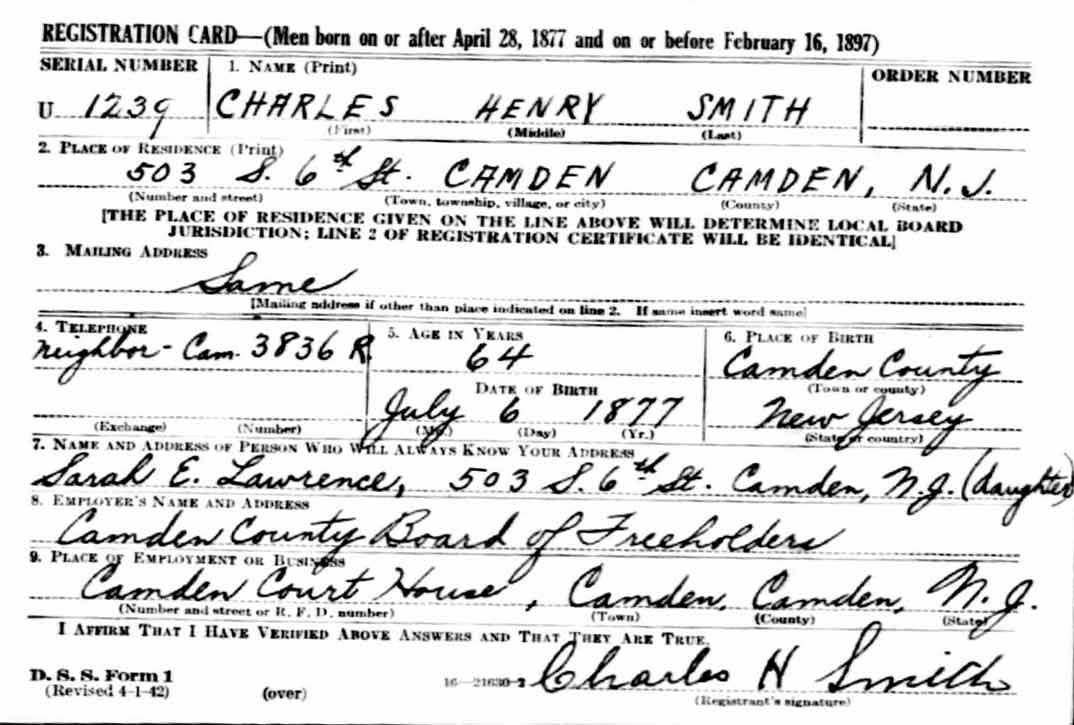 REGISTRATION CARD—(Men born on or after April 28, 1877 and on or before February 16, 1897)
SERIAL NUMBER 1. NAME (Print) ORDER NUMBER
U 1239 CHARLES HENRY SMITH
(First) (Middle) (Last)
2. PLACE OF RESIDENCE (Print)
503 S. 6th St. CAMDEN CAMDEN, N.J.
(Number and street) (Town, township, village, or city) (County) (State)
[THE PLACE OF RESIDENCE GIVEN ON THE LINE ABOVE WILL DETERMINE LOCAL BOARD
JURISDICTION; LINE 2 OF REGISTRATION CERTIFICATE WILL BE IDENTICAL]
3. MAILING ADDRESS
Same
[Mailing address if other than place indicated on line 2. If same insert word same]
4. TELEPHONE 5. AGE IN YEARS 6. PLACE OF BIRTH
Neighbor - Cam. 3836 R. 64 Camden County
DATE OF BIRTH (Town or county)
July 6 1877 New Jersey
(Exchange) (Number) (Mo.) (Day) (Yr.) (State or country)
7. NAME AND ADDRESS OF PERSON WHO WILL ALWAYS KNOW YOUR ADDRESS
Sarah E. Lawrence, 503 S. 6th St. Camden, N.J. (daughter)
8. EMPLOYER'S NAME AND ADDRESS
Camden County Board of Freeholders
9. PLACE OF EMPLOYMENT OR BUSINESS
Camden Court House, Camden, Camden, N.J.
(Number and street or R. F. D. number) (Town) (County) (State)
I AFFIRM THAT I HAVE VERIFIED ABOVE ANSWERS AND THAT THEY ARE TRUE.
D. S. S. Form 1
(Revised 4-1-42) (over) 16—21630-2 Charles H Smith
(Registrant's signature)